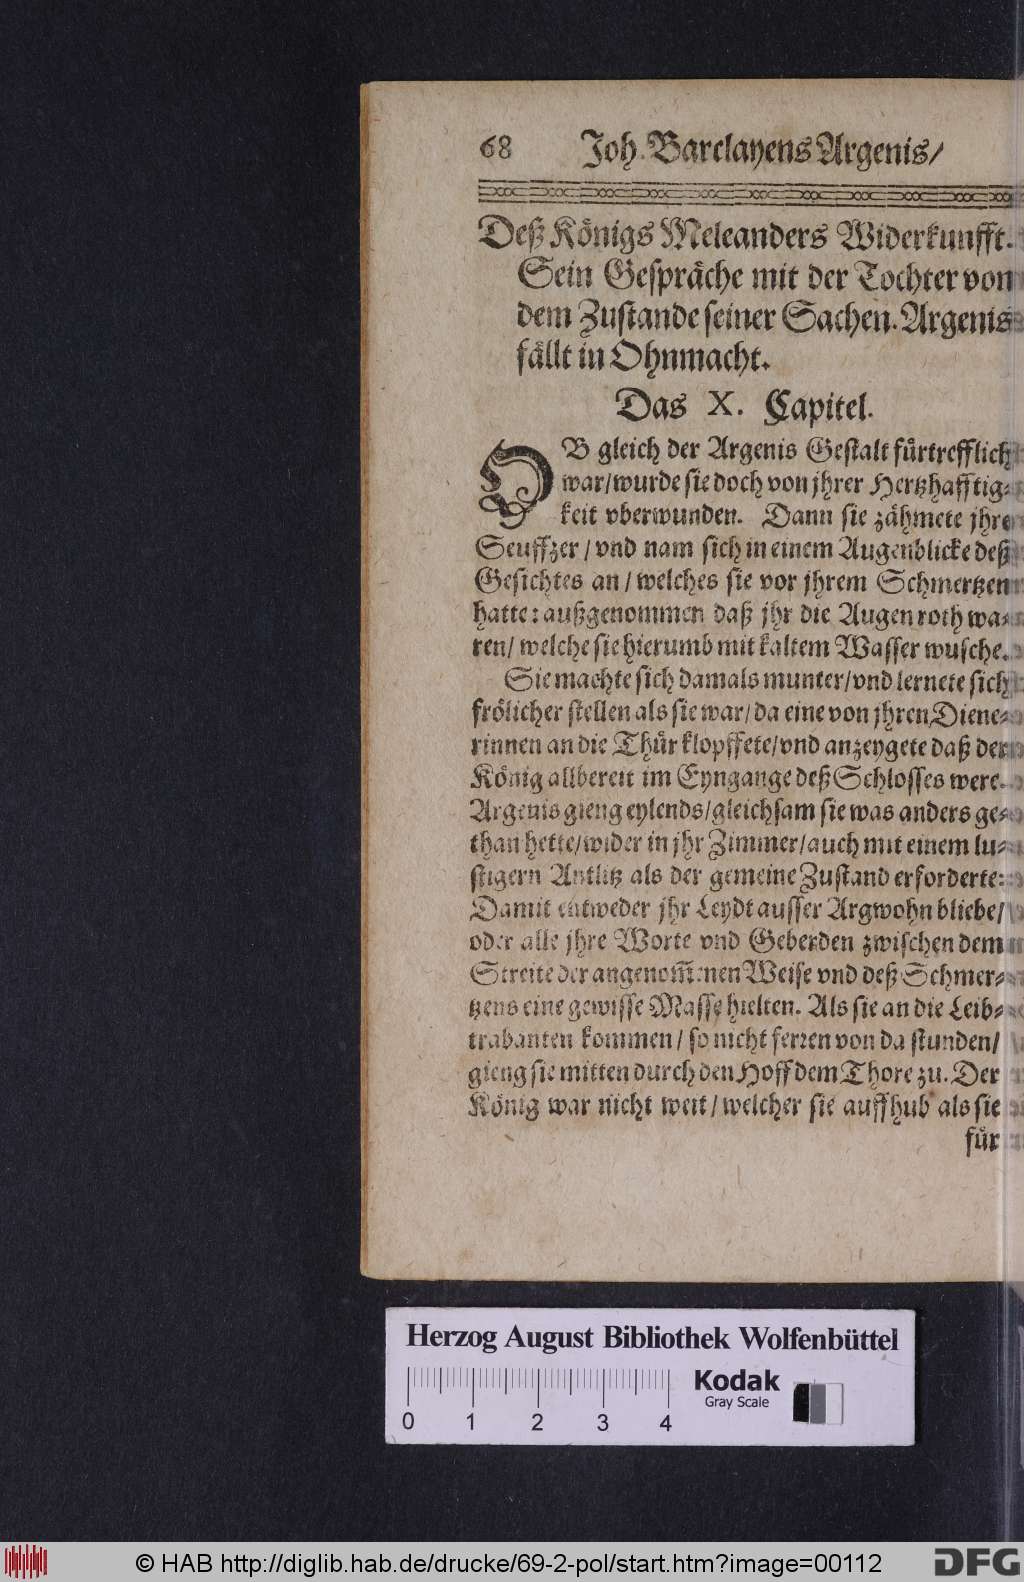 68 Joh. Barclayens Argenis/
Deß Königs Meleanders Widerkunfft.
Sein Gespräche mit der Tochter von
dem Zustande seiner Sachen. Argenis
fällt in Ohnmacht.
Das X. Capitel.
OB gleich der Argenis Gestalt fürtrefflich
war/wurde sie doch von jhrer Hertzhafftig-
keit vberwunden. Dann sie zähmete jhre
Seuffzer/vnd nam sich in einem Augenblicke deß
Gesichtes an/welches sie vor jhrem Schmertzen
hatte: außgenommen daß jhr die Augen roth wa-
ren/welche sie hierumb mit kaltem Wasser wusche.
Sie machte sich damals munter/vnd lernete sich
frölicher stellen als sie war/da eine von jhren Diene-
rinnen an die Thür klopffete/vnd anzeygete daß der
König allbereit im Eyngange deß Schlosses were.
Argenis gieng eylends/gleichsam sie was anders ge-
than hette/wider in jhr Zimmer/auch mit einem lu-
stigern Antlitz als der gemeine Zustand erforderte:
Damit entweder jhr Leydt ausser Argwohn bliebe/
oder alle jhre Worte vnd Geberden zwischen dem
Streite der angenom̃enen Weise vnd deß Schmer-
tzens eine gewisse Masse hielten. Als sie an die Leib-
trabanten kommen/so nicht ferren von da stunden/
gieng sie mitten durch den Hoff dem Thore zu. Der
König war nicht weit/welcher sie auffhub als sie
für
Herzog August Bibliothek Wolfenbüttel
Kodak
Gray Scale
0 1 2 3 4
© HAB http://diglib.hab.de/drucke/69-2-pol/start.htm?image=00112
DFG